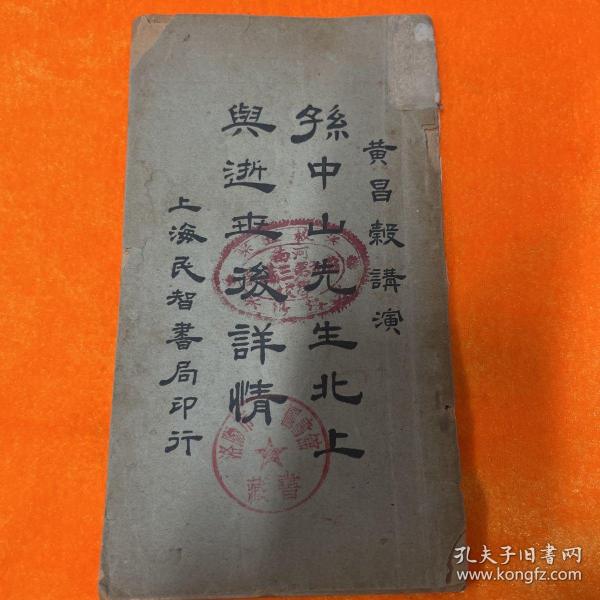 黃昌穀講演
孫中山先生北上
與逝世後詳情
上海民智書局印行
藏書
孔夫子旧书网
www.kongfz.com